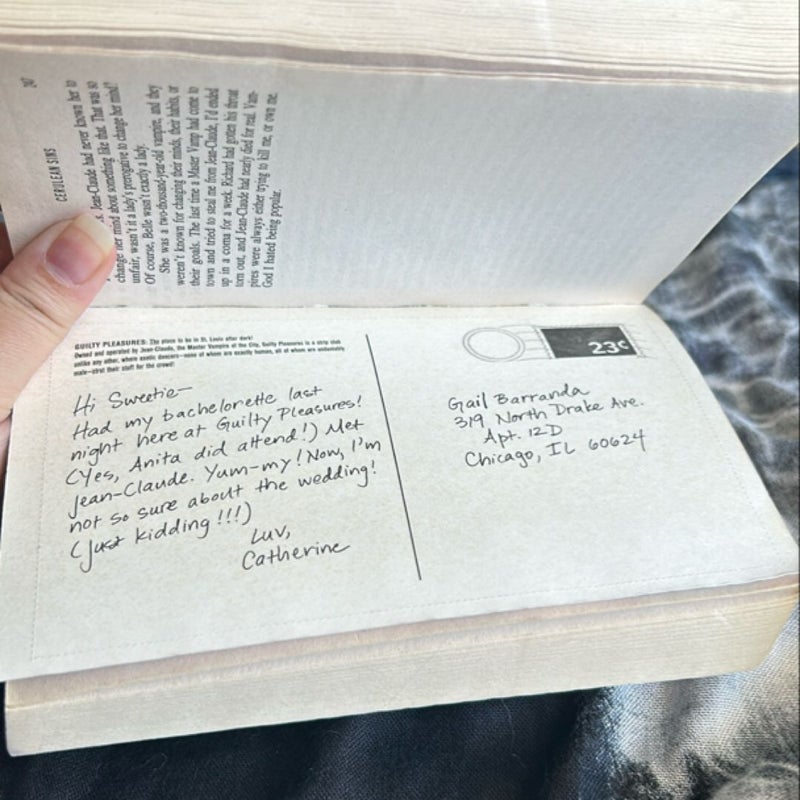 247
CERULEAN SINS
Jean-Claude had never known her to
change her mind about something like that. That was so
unfair, wasn't it a lady's prerogative to change her mind?
Of course, Belle wasn't exactly a lady.
She was a two-thousand-year-old vampire, and they
weren't known for changing their minds, their habits, or
their goals. The last time a Master Vamp had come to
town and tried to steal me from Jean-Claude, I'd ended
up in a coma for a week. Richard had gotten his throat
torn out, and Jean-Claude had nearly died for real. Vam-
pires were always either trying to kill me, or own me.
God I hated being popular.
GUILTY PLEASURES: The place to be in St. Louis after dark!
Owned and operated by Jean-Claude, the Master Vampire of the City, Guilty Pleasures is a strip club
unlike any other, where exotic dancers—none of whom are exactly human, all of whom are undeniably
male—strut their stuff for the crowd!
Hi Sweetie—
Had my bachelorette last
night here at Guilty Pleasures!
(Yes, Anita did attend!) Met
Jean-Claude. Yum-my! Now, I'm
not so sure about the wedding!
(Just kidding!!!)
Luv,
Catherine
23¢
Gail Barranda
319 North Drake Ave.
Apt. 12D
Chicago, IL 60624